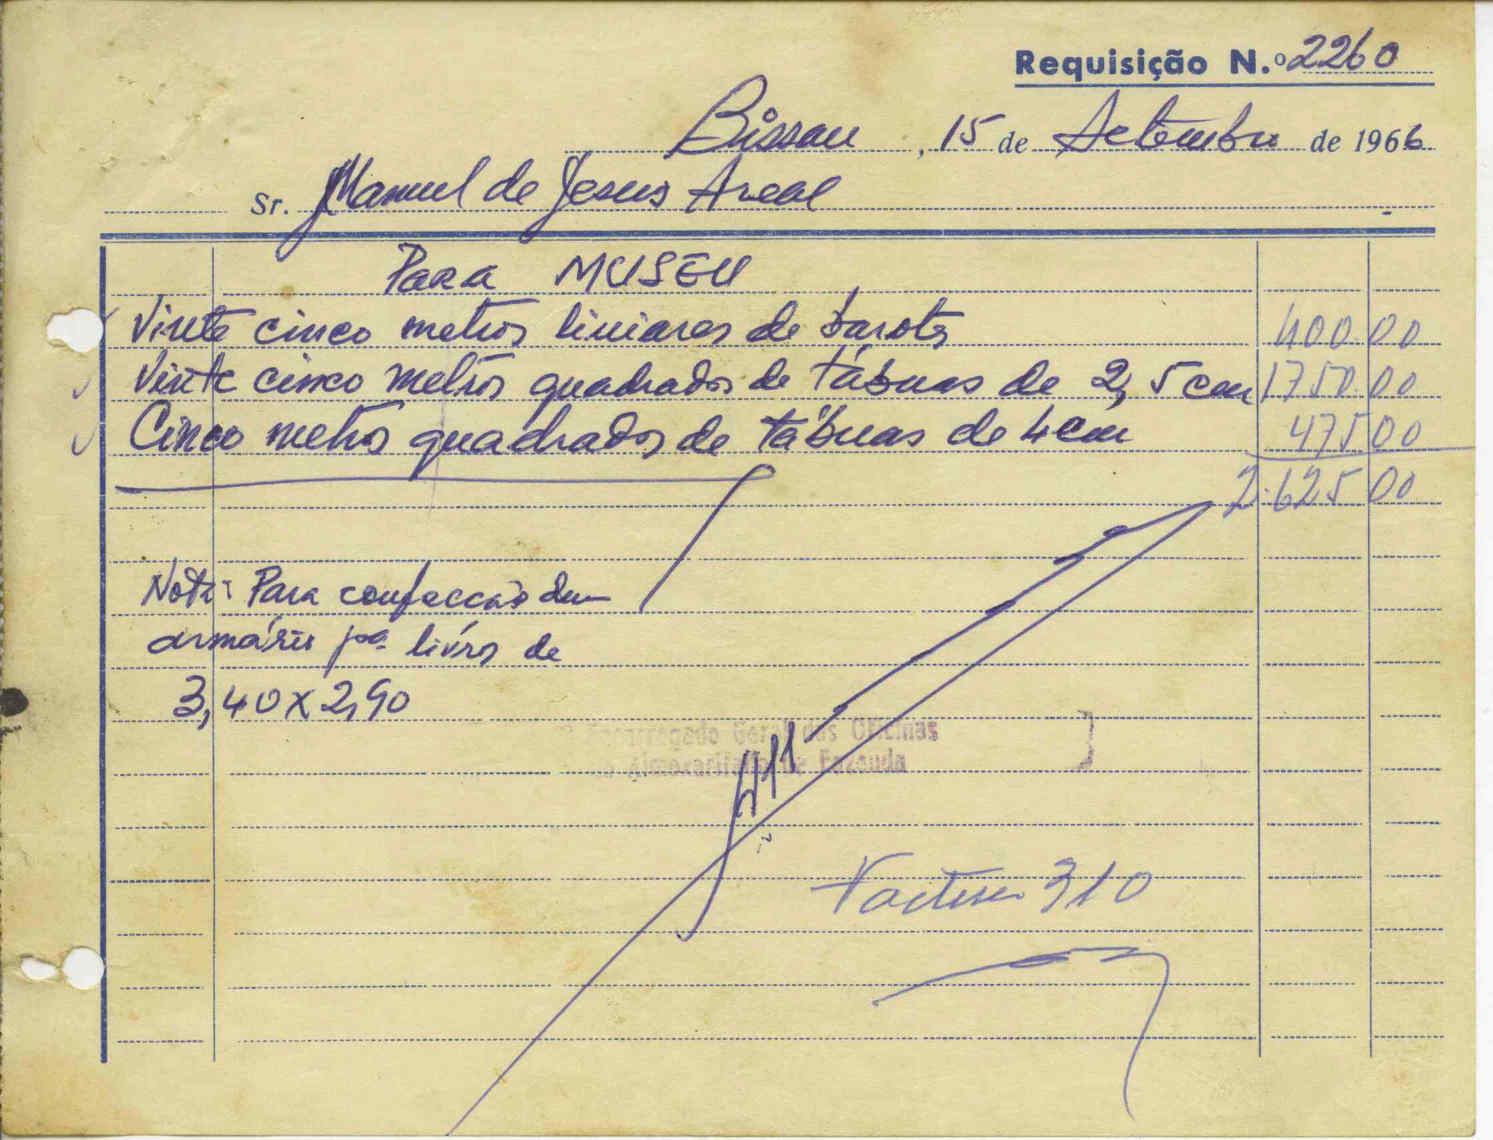 Requisição N.º 2260
Bissau, 15 de Setembro de 1966
Sr. Manuel de Jesus Areal
Para MUSEU
Vinte cinco metros liniares de barotes 400 00
Vinte cinco metros quadrados de tábuas de 2,5 cm 1750 00
Cinco metros quadrados de tábuas de 4 cm 475 00
2.625 00
Nota: Para confecção dum
armário pª livros de
3,40 x 2,90
O Encarregado Geral das Oficinas
do Almoxarifado de Fazenda
Factura 310